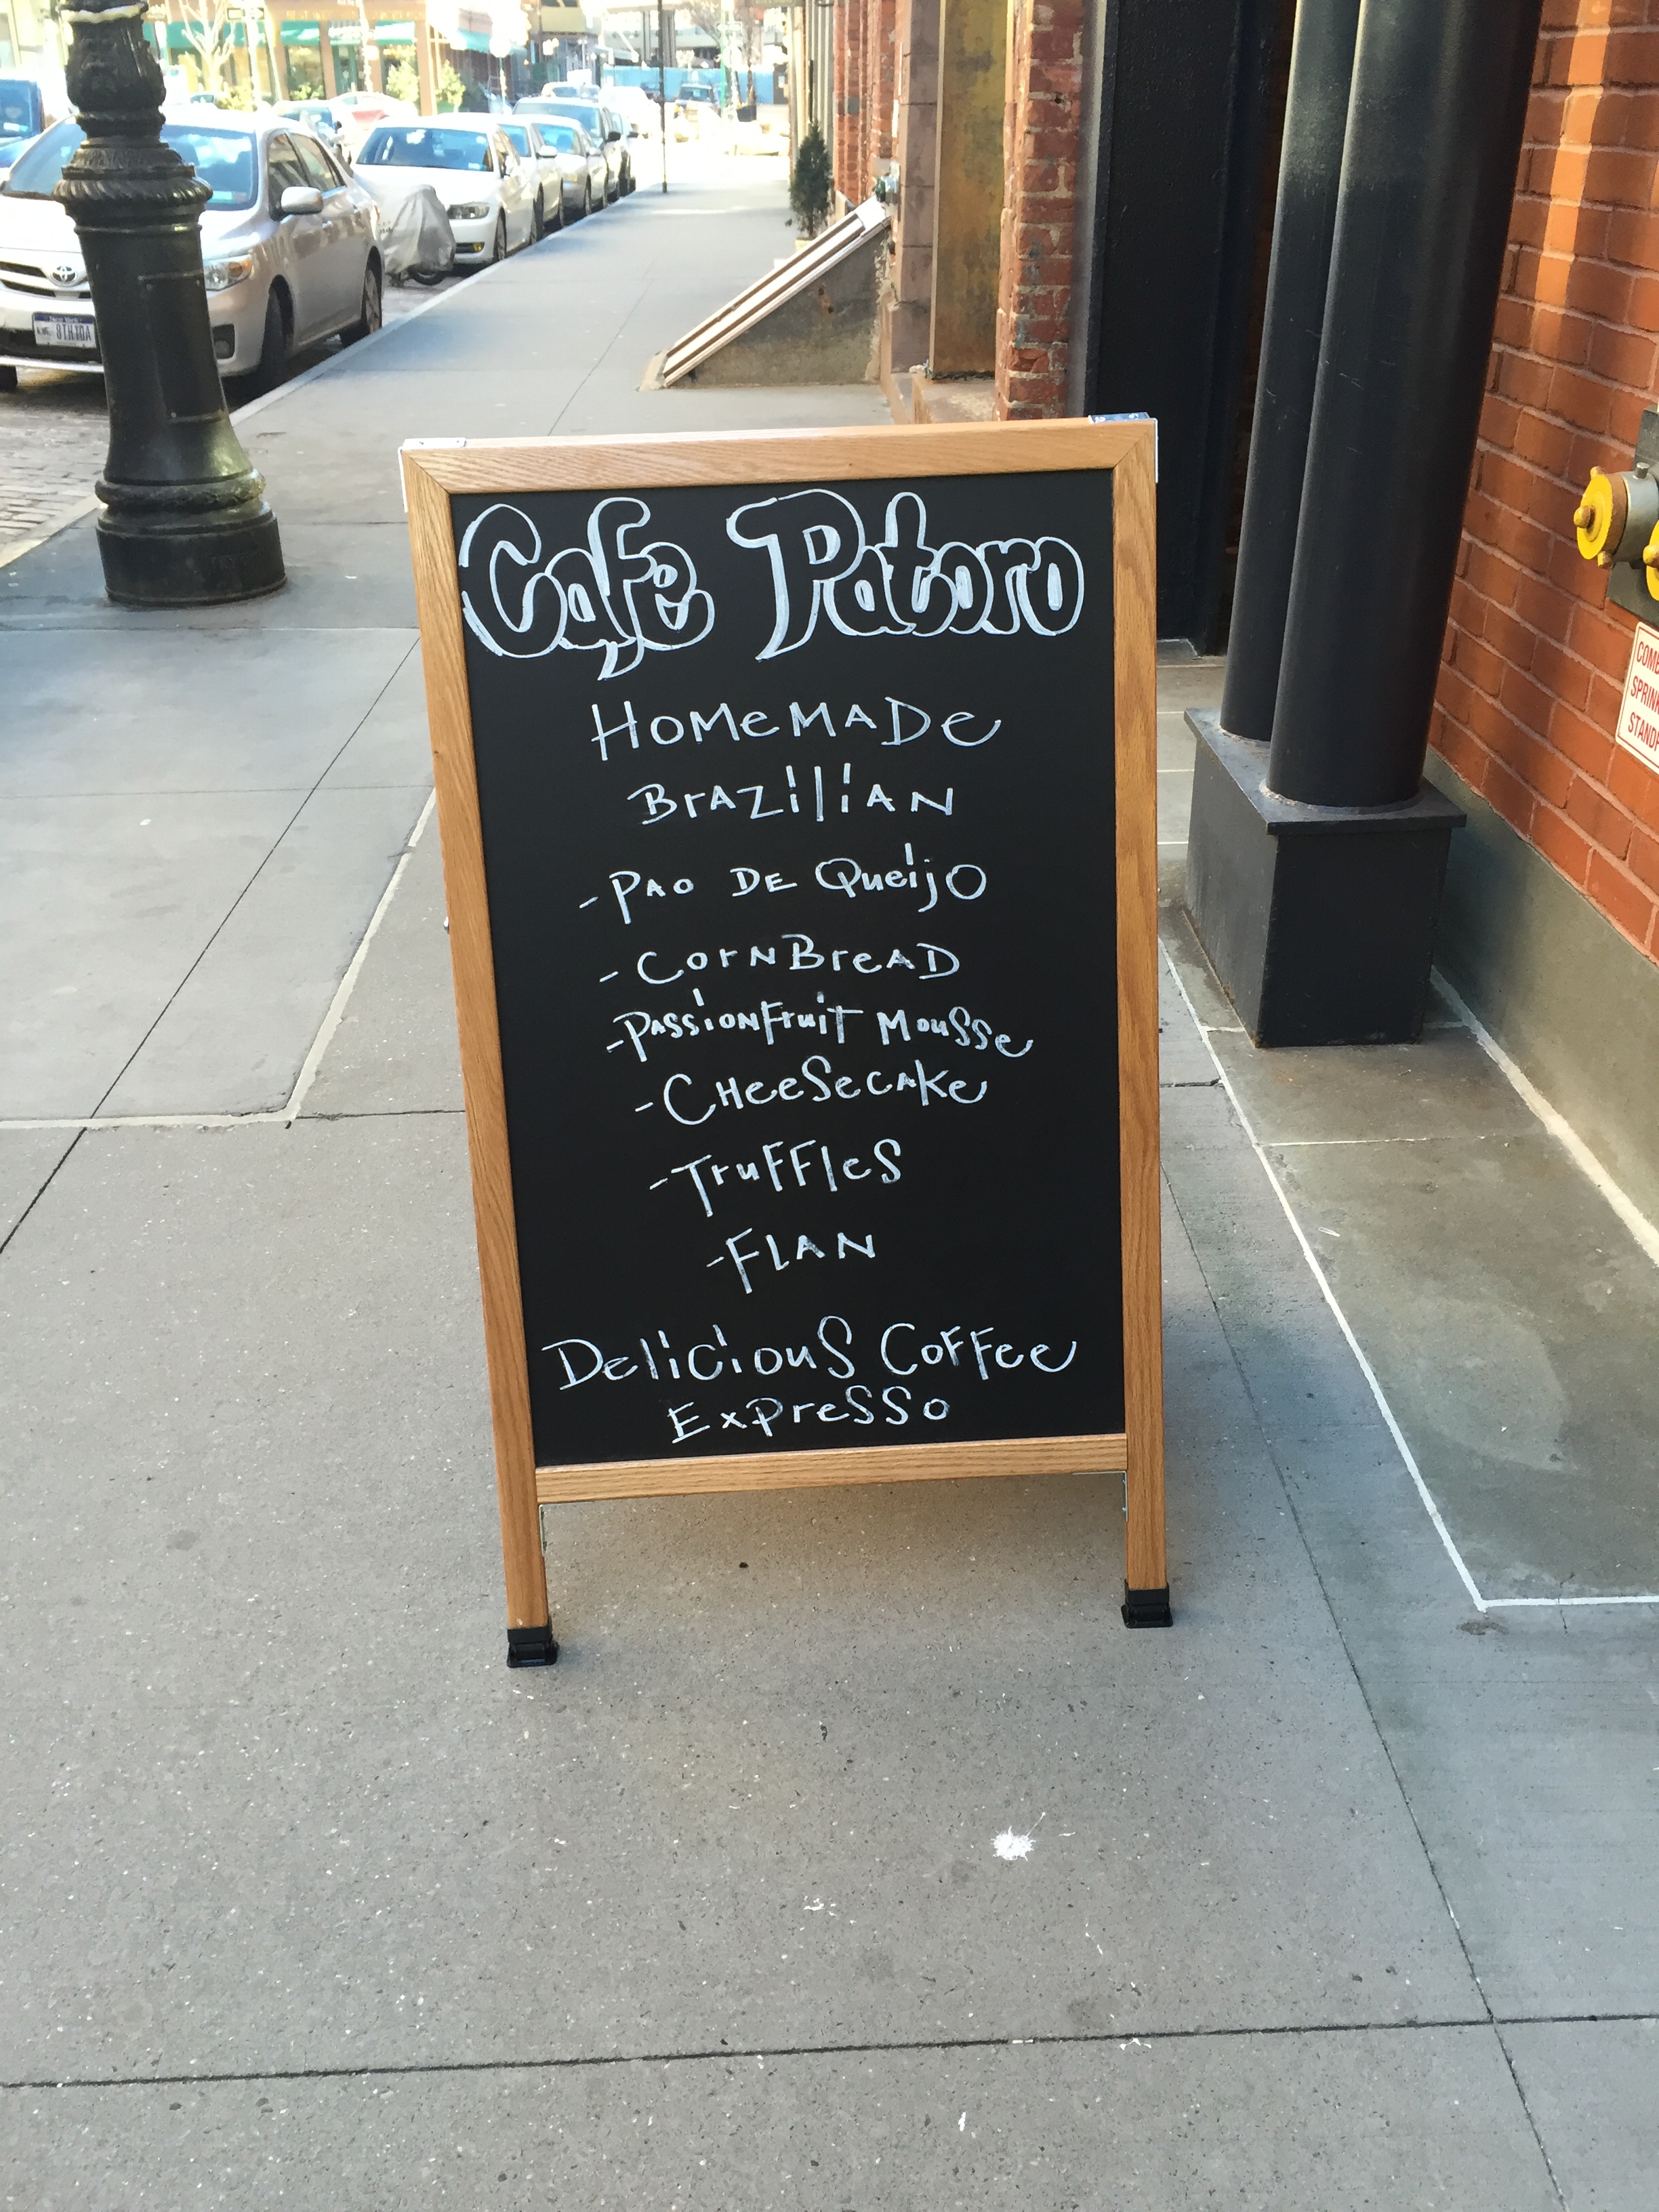 Cafe Patoro
HOMeMADe
BrAZiliAN
-PAO DE QueijO
-CornBreAD
-PASSiONFruiT MouSSe
-CHeeSecAKe
-TruFFleS
-FLAN
DeliciouS CoFFee
ExPreSSo
COMB
SPRINK
STANDP